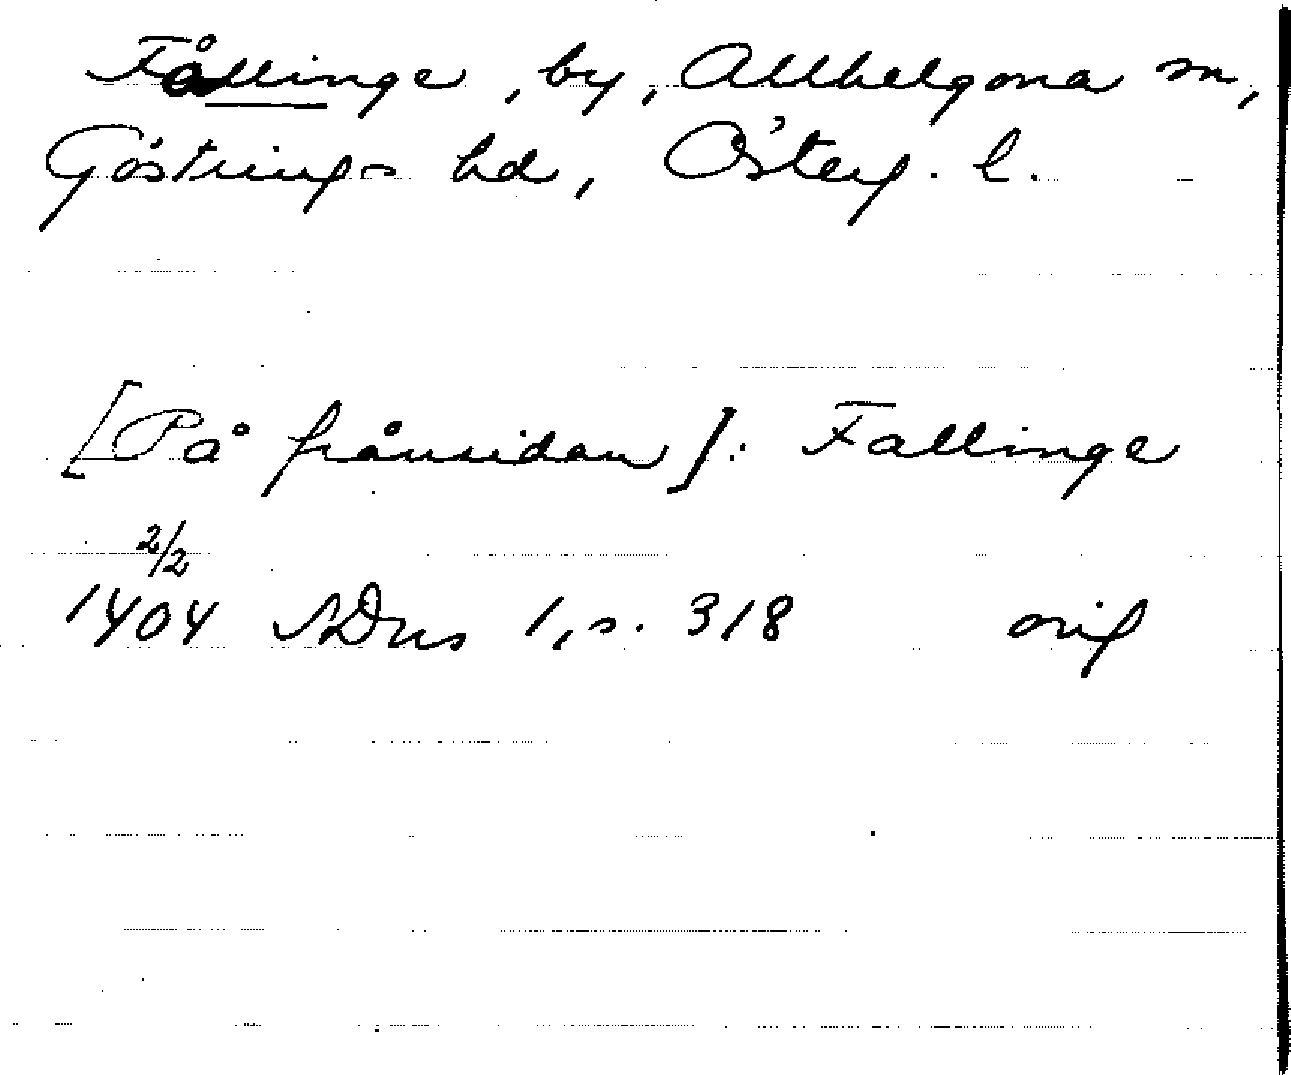 Fållinge, by, Allhelgona sn,
Göstrings hd, Österg. l.
[På frånsidan]: Fallinge
2/2
1404 SDns 1, s. 318 orig